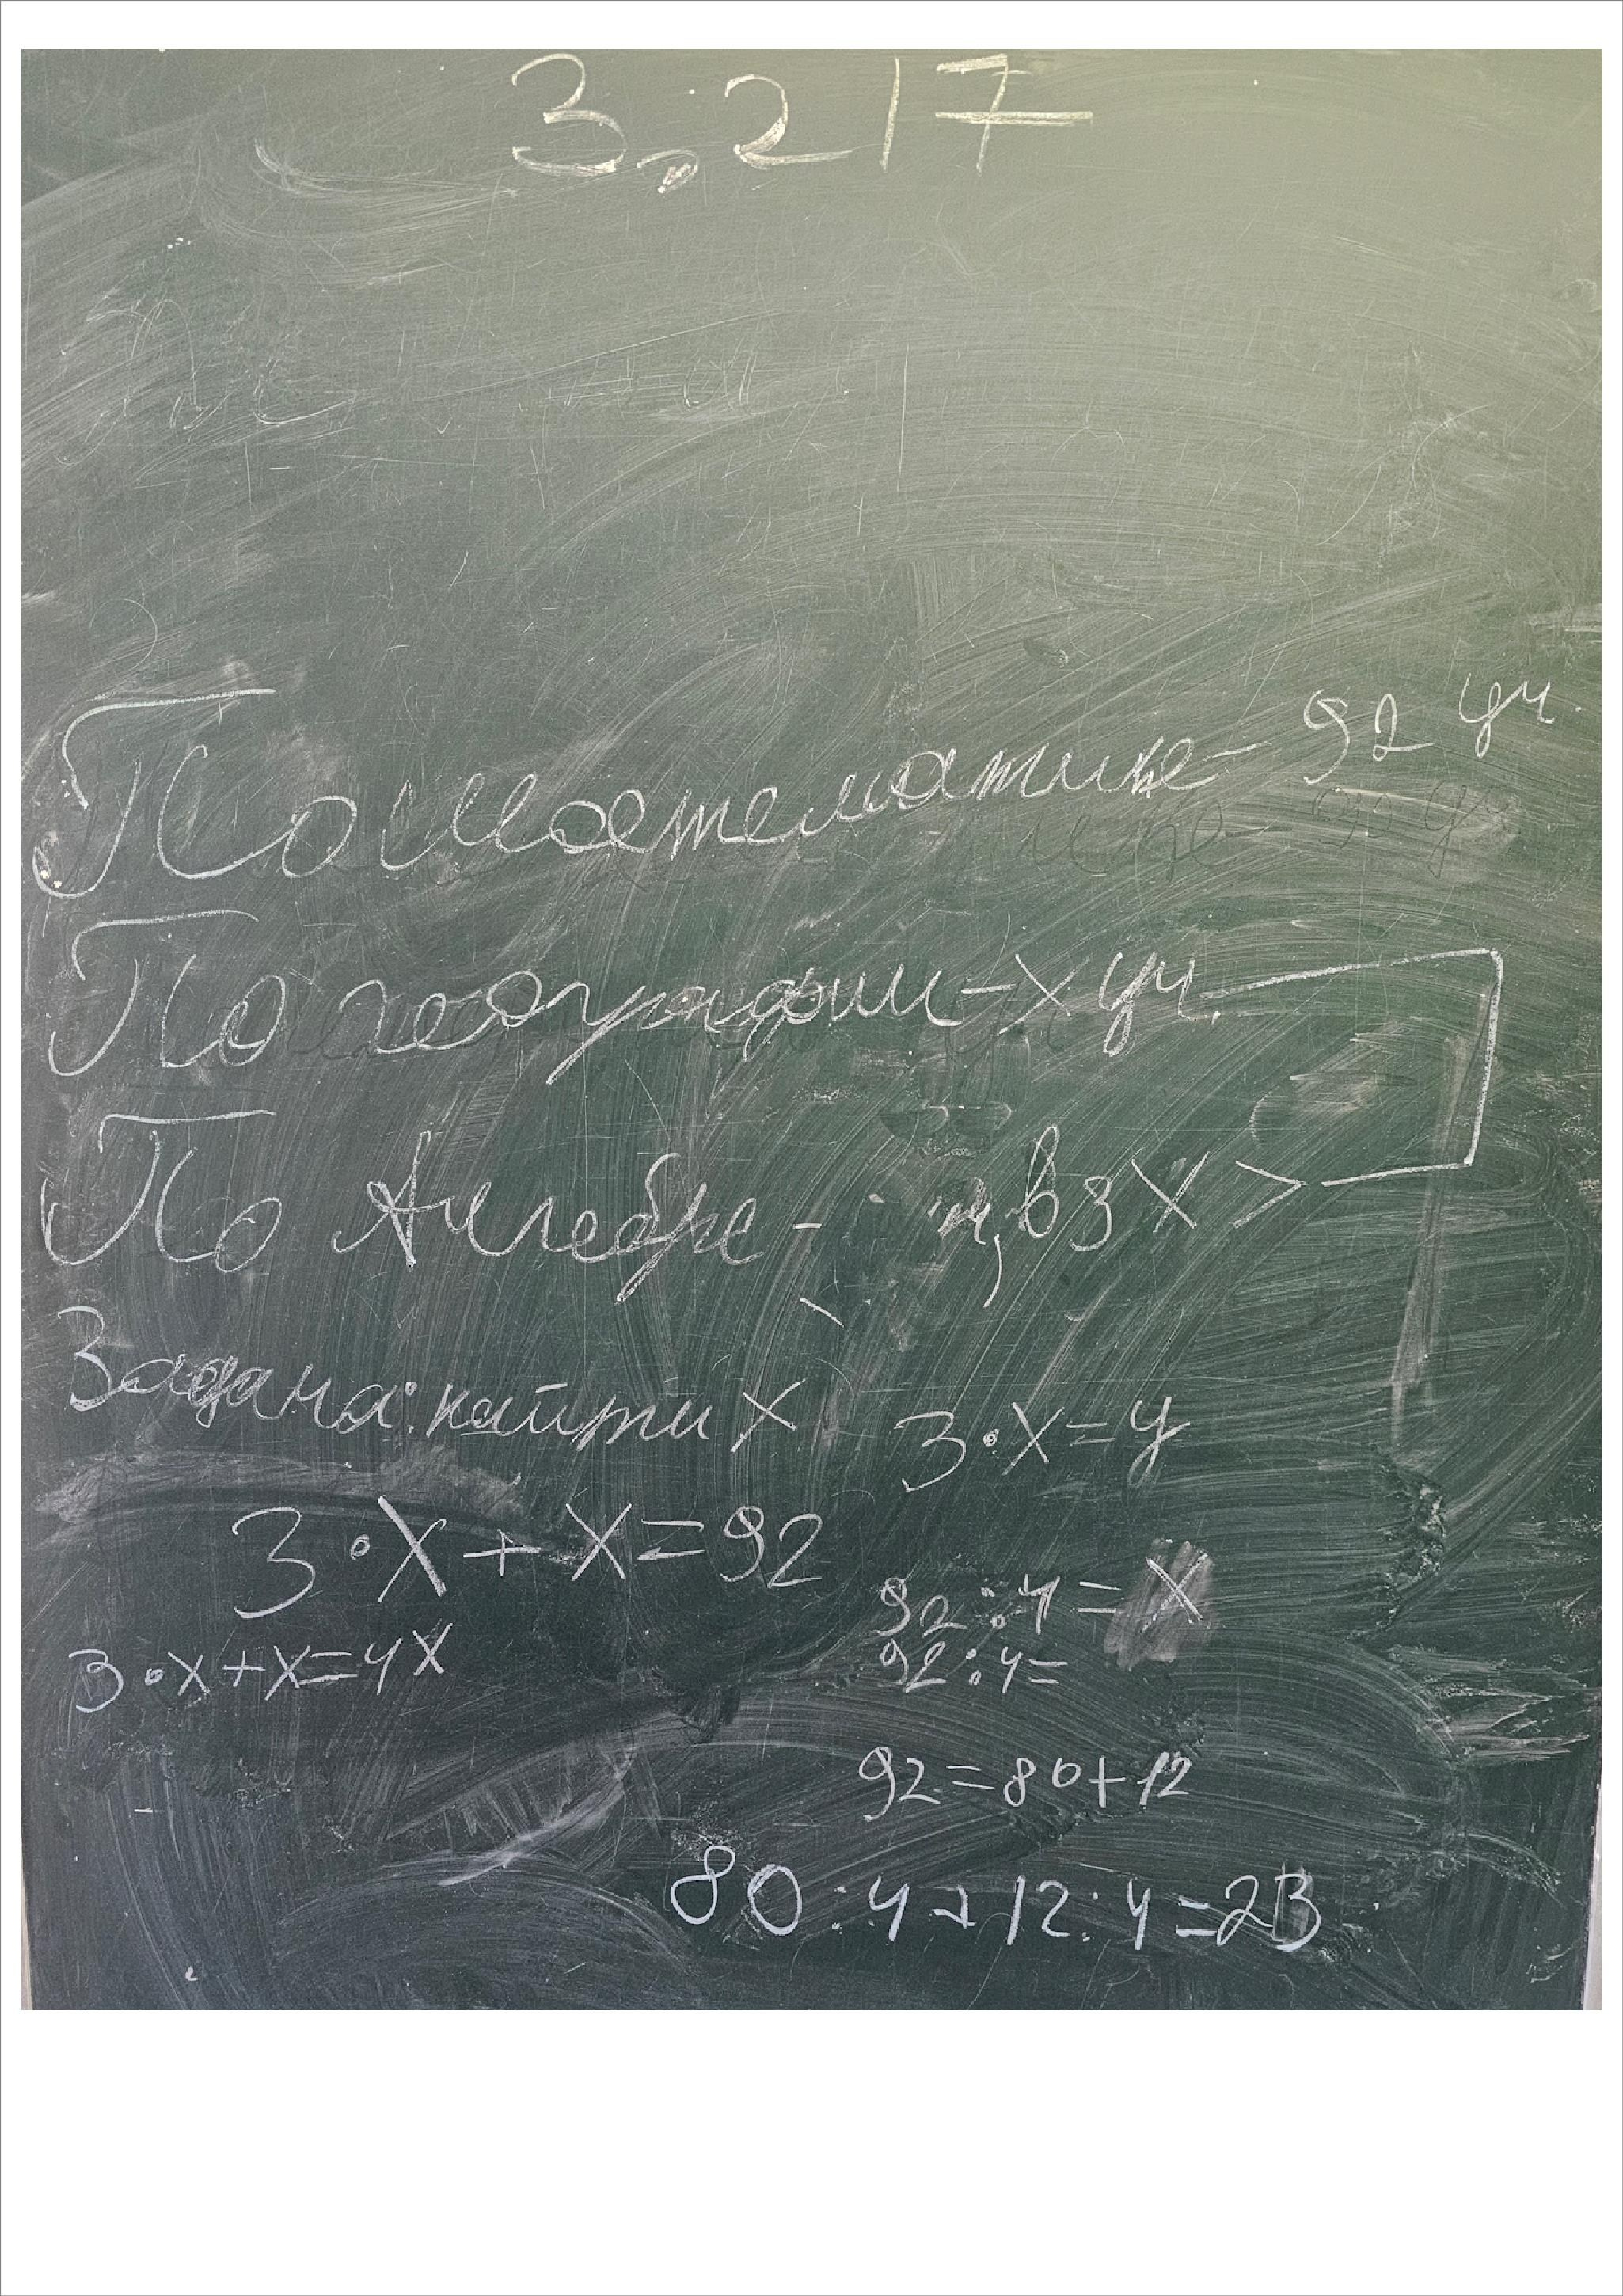 3.217
По математике - 92 уч.
По географии - х уч.
По Алгебре - ,в 3 х >
Задача: найти х
3·х=у
3·х+х=92
92:4=х
3·х+х=4х
92:4=
92=80+12
80:4+12:4=23